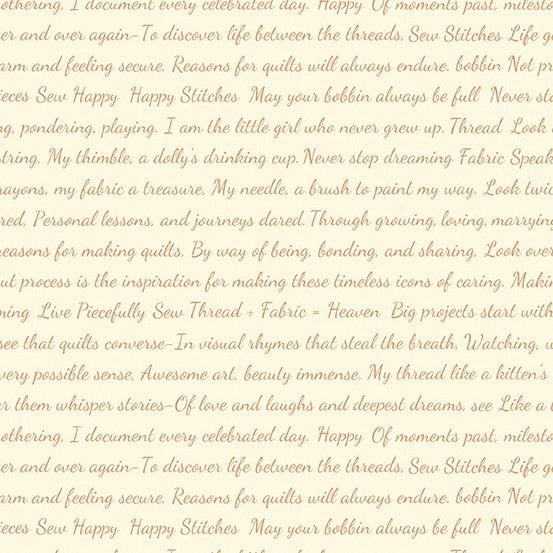 othering, I document every celebrated day. Happy Of moments past, milesto
er and over again-To discover life between the threads, Sew Stitches Life g
arm and feeling secure, Reasons for quilts will always endure. bobbin Not pr
ieces Sew Happy Happy Stitches May your bobbin always be full Never sto
ng, pondering, playing. I am the little girl who never grew up. Thread Look
string, My thimble, a dolly's drinking cup. Never stop dreaming Fabric Speak
rayons, my fabric a treasure, My needle, a brush to paint my way. Look twic
red, Personal lessons, and journeys dared. Through growing, loving, marrying
reasons for making quilts, By way of being, bonding, and sharing, Look over
ut process is the inspiration for making these timeless icons of caring. Makin
ming Live Piecefully Sew Thread + Fabric = Heaven Big projects start with
see that quilts converse-In visual rhymes that steal the breath, Watching, w
very possible sense, Awesome art, beauty immense. My thread like a kitten's
r them whisper stories-Of love and laughs and deepest dreams, see Like a
othering, I document every celebrated day. Happy Of moments past, milesto
er and over again-To discover life between the threads, Sew Stitches Life g
arm and feeling secure, Reasons for quilts will always endure. bobbin Not pr
ieces Sew Happy Happy Stitches May your bobbin always be full Never sto